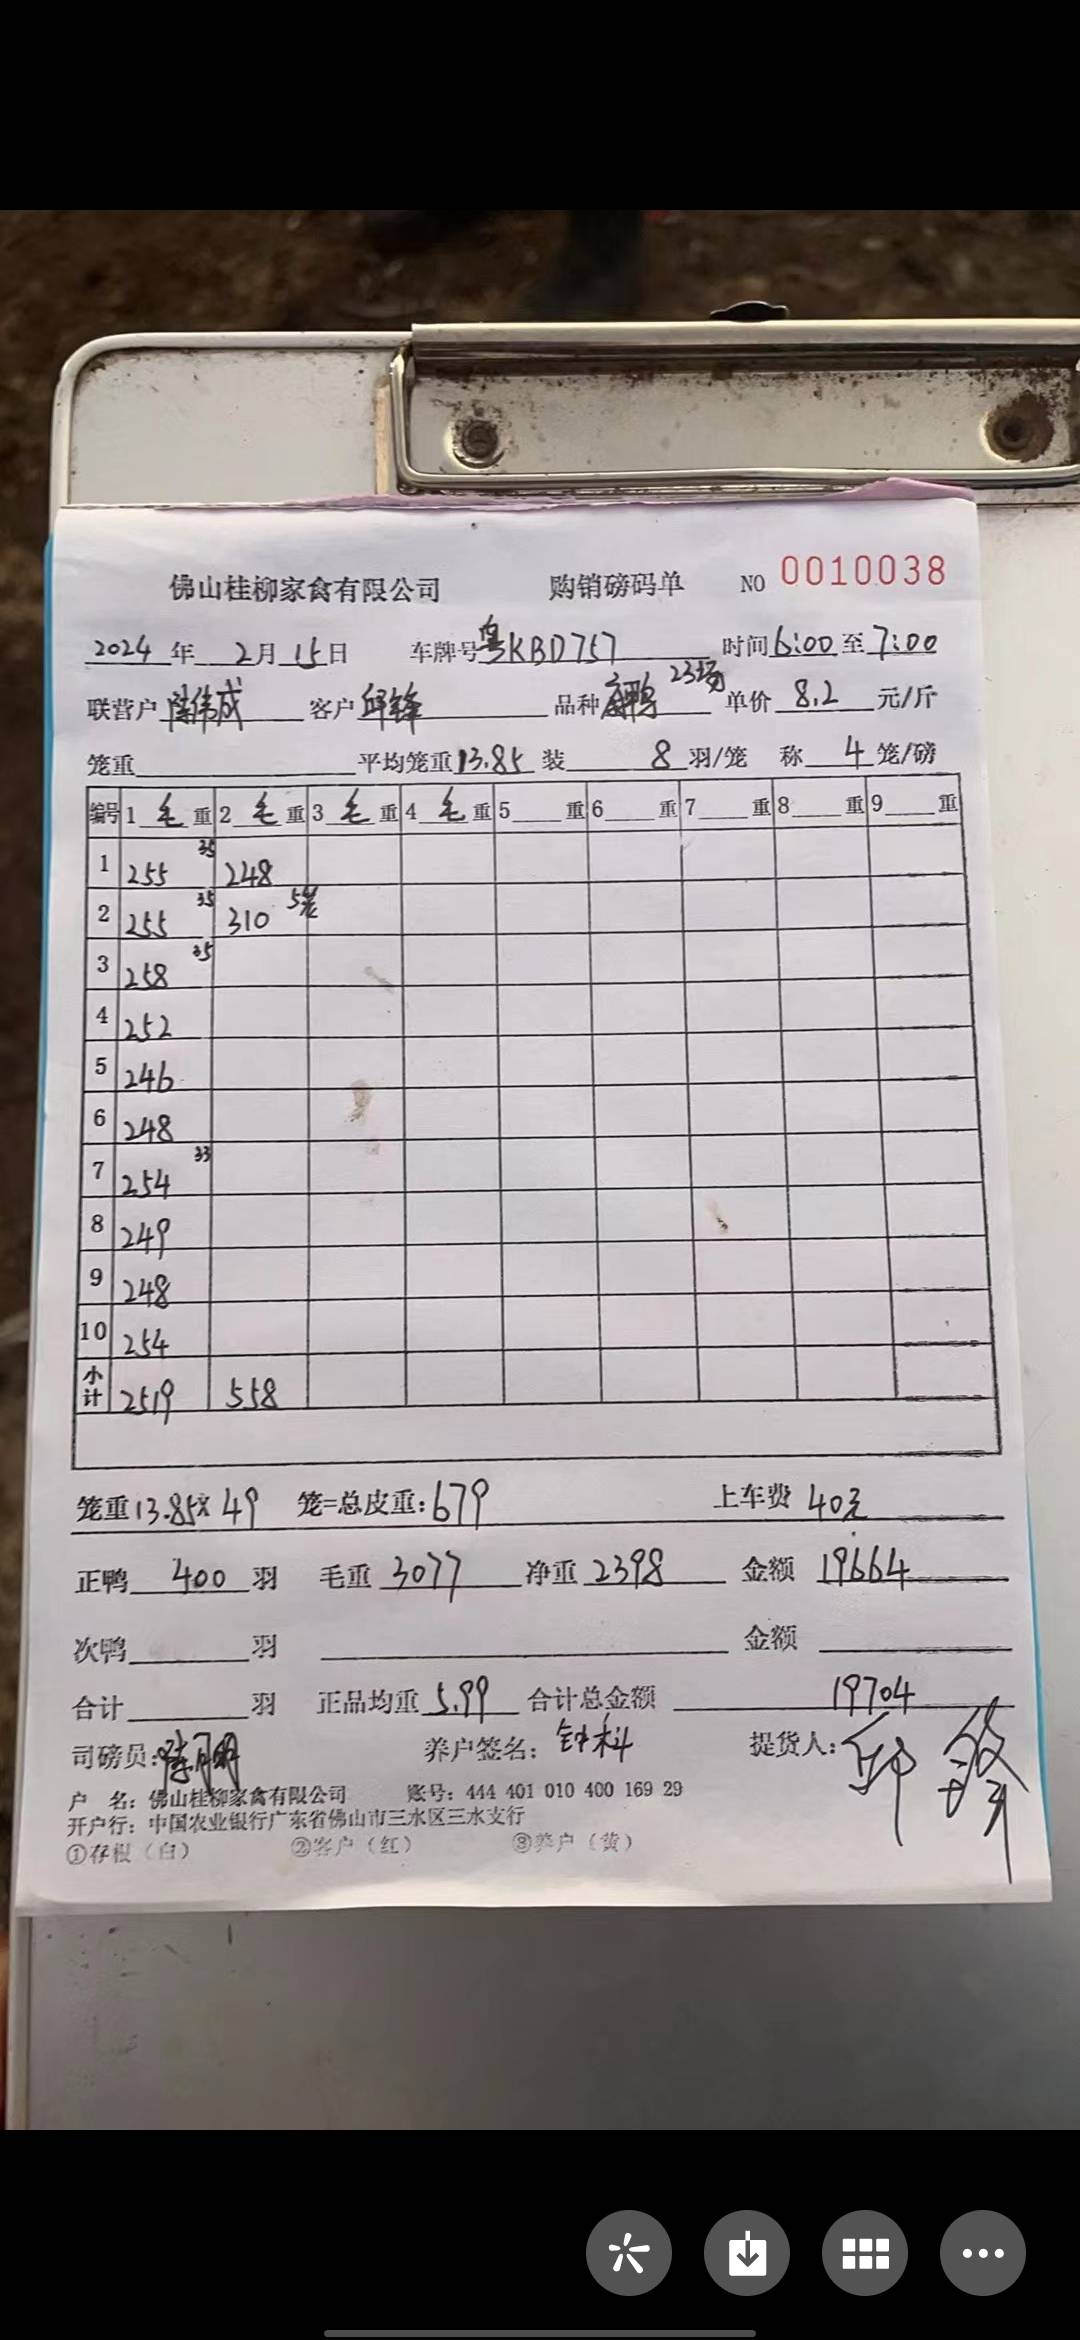 佛山桂柳家禽有限公司 购销磅码单 NO 0010038
2024年2月15日 车牌号粤KBD757 时间6:00至7:00
联营户陈伟成 客户邱锋 品种 23场 单价8.2元/斤
笼重 平均笼重13.85 装8羽/笼 称4笼/磅
编号 1毛重 2毛重 3毛重 4毛重 5重 6重 7重 8重 9重
1 255 35 248
2 255 35 310 5笼
3 258 35
4 252
5 246
6 248
7 254 33
8 249
9 248
10 254
小计 2519 558
笼重13.85x49 笼=总皮重:679 上车费40元
正鸭400羽 毛重3077 净重2398 金额19664
次鸭 羽 金额
合计 羽 正品均重5.99 合计总金额 19704
司磅员:陈月明 养户签名:钟科 提货人:邱锋
户 名:佛山桂柳家禽有限公司 账号:444 401 010 400 169 29
开户行:中国农业银行广东省佛山市三水区三水支行
①存根(白) ②客户(红) ③养户(黄)